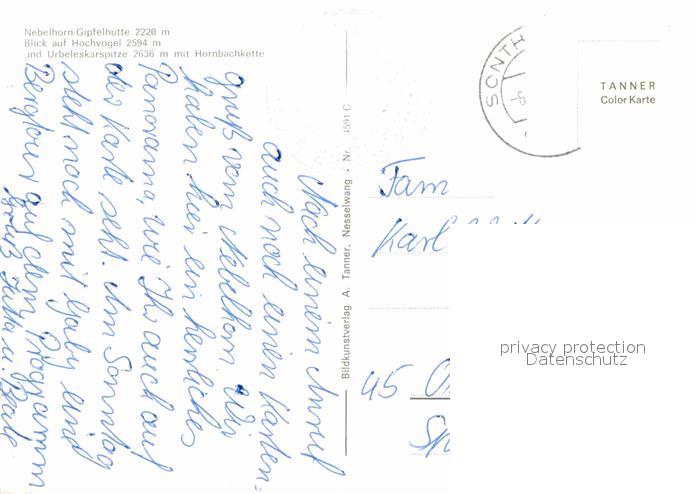 Nebelhorn-Gipfelhütte 2220 m
Blick auf Hochvogel 2594 m
und Urbeleskarspitze 2636 m mit Hornbachkette
Nach einem Anruf
auch noch einen Karten-
gruß vom Nebelhorn. Wir
haben hier ein herrliches
Panorama, wie Ihr auch auf
der Karte seht. Am Sonntag
steht noch mit Gaby eine
Bergtour auf dem Programm
Gruß Jutta u.
Bildkunstverlag A. Tanner, Nesselwang - Nr. 4591 C
SONTH
TANNER
Color Karte
Fam
Karl
45
privacy protection
Datenschutz